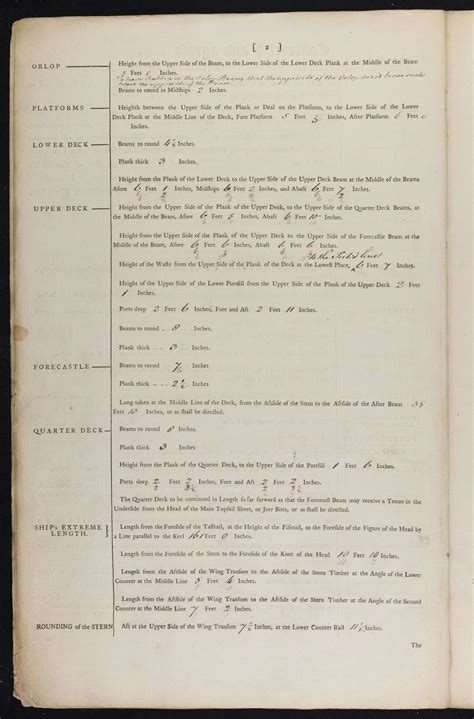 [ 2 ]
ORLOP Height from the Upper Side of the Beam, to the Lower Side of the Lower Deck Plank at the Middle of the Beam
5 Feet 0 Inches.
Beams to round in Midships 2 Inches.
PLATFORMS Heighth between the Upper Side of the Plank or Deal on the Platforms, to the Lower Side of the Lower
Deck Plank at the Middle Line of the Deck, Fore Platform 5 Feet 3 Inches, After Platform 6 Feet 0
Inches.
LOWER DECK Beams to round 4½ Inches.
Plank thick 3 Inches.
Height from the Plank of the Lower Deck to the Upper Side of the Upper Deck Beam at the Middle of the Beams
Afore 6 Feet 1 Inches, Midships 6 Feet Inches, and Abaft 6 Feet 7 Inches.
UPPER DECK Height from the Upper Side of the Plank of the Upper Deck, to the Upper Side of the Quarter Deck Beams, at
the Middle of the Beam, Afore 6 Feet Inches, Abaft 6 Feet 10 Inches.
Height from the Upper Side of the Plank of the Upper Deck to the Upper Side of the Forecastle Beam at the
Middle of the Beam, Afore 6 Feet 6 Inches, Abaft 6 Feet 6 Inches.
Height of the Waste from the Upper Side of the Plank of the Deck at the Lowest Place, 6 Feet 7 Inches.
Height of the Upper Side of the Lower Portsill from the Upper Side of the Plank of the Upper Deck 2 Feet
1 Inches.
Ports deep 2 Feet 6 Inches, Fore and Aft 2 Feet 11 Inches.
Beams to round 8 Inches.
Plank thick 3 Inches.
FORECASTLE Beams to round 7½ Inches.
Plank thick 2½ Inches
Long taken at the Middle Line of the Deck, from the Aftside of the Stem to the Aftside of the After Beam 35
Feet 10 Inches, or as shall be directed.
QUARTER DECK Beams to round 8 Inches.
Plank thick 3 Inches
Height from the Plank of the Quarter Deck, to the Upper Side of the Portsill 1 Feet 6 Inches.
Ports deep 2 Feet 2 Inches, Fore and Aft 2 Feet 2 Inches.
The Quarter Deck to be continued in Length so far forward as that the Foremost Beam may receive a Tenon in the
Underside from the Head of the Main Topsail Sheet, or Jeer Bitts, or as shall be directed.
SHIP's EXTREME LENGTH. Length from the Foreside of the Taffrail, at the Height of the Fiferail, to the Foreside of the Figure of the Head by
a Line parallel to the Keel 161 Feet 0 Inches.
Length from the Foreside of the Stem to the Foreside of the Knee of the Head 10 Feet 10 Inches.
Length from the Aftside of the Wing Transom to the Aftside of the Stern Timber at the Angle of the Lower
Counter at the Middle Line 5 Feet 4 Inches.
Length from the Aftside of the Wing Transom to the Aftside of the Stern Timber at the Angle of the Second
Counter at the Middle Line 7 Feet 2 Inches.
ROUNDING of the STERN Aft at the Upper Side of the Wing Transom 7½ Inches, at the Lower Counter Rail 11½ Inches.
The